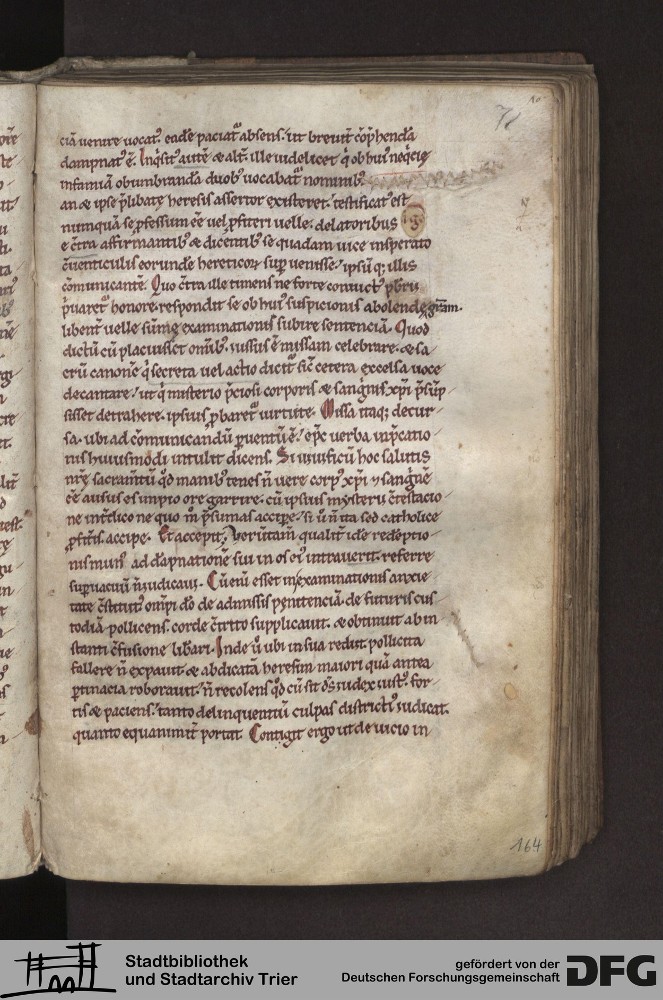 70
ciā uenire uocat᷒. eadē paciat᷑ absens. ut breuit̄ cōp̄henda
dampnat᷒ ē. Inq̇sit᷒ autē & alt̄. ille uidelicet q̇ ob hui᷒ neq̇cię
infamiā obumbrandā duob᷒ uocabat᷑ nominib᷒.
an & ipse p̄libatę heresis assertor existeret. testificat᷒ est
nunquā se ꝓfessum eē uel ꝓfiteri uelle. delatoribus
e c̄tra affirmantib᷒ & dicentib᷒ se quadam uice insperato
c̄uenticulis eorundē hereticoꝝ suꝑuenisse. ipsūq; illis
cōmunicantē. Quo c̄tra ille timens ne forte conuict᷒ pb̄ru
ṗuaret᷑ honore. respondit se ob hui᷒ suspicionis abolendę gr̄am.
libent̄ uelle sūmę examinationis subire sentenciā. Quod
dictū cū placuisset om̄ib᷒. iussus ē missam celebrare. & sa
crū canonē q̇ secreta uel actio dicit᷑ sic̄ cetera excelsa uoce
decantare. ut q̇ misterio p̄ciosi corporis & sanguinis xp̄i p̄sūp
sisset detrahere. ipsius ꝓbaret᷑ uirtute. Missa itaq; decur
sa. ubi ad cōmunicandū ꝑuentū ē. ep̄c uerba inp̄catio
nis huiusmodi intulit dicens. Si uiuificū hoc salutis
nr̄ę sacram̄tū qd̄ manib᷒ tenes n̄ uere corp᷒ xp̄i ⁊ sanguinē
eē ausus es impio ore garrire. cū ipsius mysterii c̄testacio
ne int̄dico ne quo m̊ p̄sumas accipe. si ů n̄ ita sed catholice
ꝓfit̄is accipe. Et accepit. Verūtam̄ qualit̄ idē redēptio
nis mun᷒ ad dāpnationē sui in os ei᷒ intrauerit. referre
suꝑuacuū n̄ iudicaui. Cū enī esset in examinationis anxie
tate c̄stitut᷒ om̄pi dō de admissis penitenciā. de futuris cus
todiā pollicens. corde c̄trito supplicauit. & obtinuit ab in
stanti c̄fusione lib̄ari. Inde ů ubi in sua rediit. pollicita
fallere n̄ expauit. & abdicatā heresim maiori quā antea
ꝑtinacia roborauit. n̄ recolens qd̄ cū sit d̄s iudex iust᷒. for
tis & paciens. tanto delinquentiū culpas districti᷒ iudicat.
quanto equanimit̄ portat. Contigit ergo ut de uicio in
164
Stadtbibliothek
und Stadtarchiv Trier
gefördert von der
Deutschen Forschungsgemeinschaft
DFG